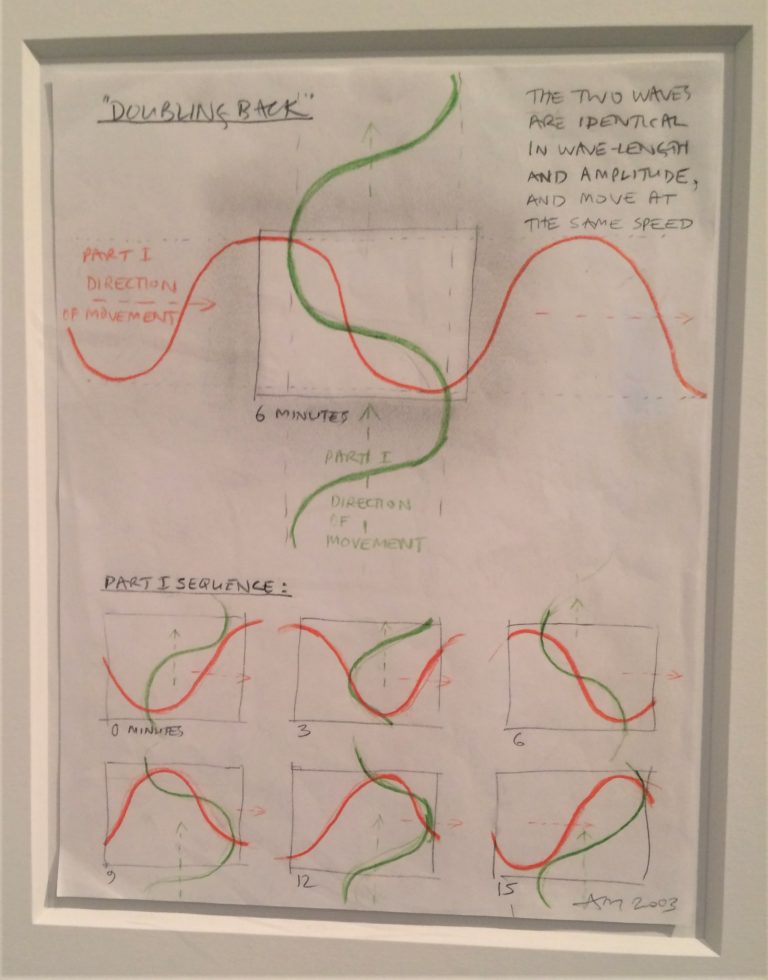 "DOUBLING BACK"
THE TWO WAVES
ARE IDENTICAL
IN WAVE-LENGTH
AND AMPLITUDE,
AND MOVE AT
THE SAME SPEED
PART I
DIRECTION
OF MOVEMENT
6 MINUTES
PART I
DIRECTION
OF
MOVEMENT
PART I SEQUENCE:
0 MINUTES
3
6
9
12
15
AM 2003